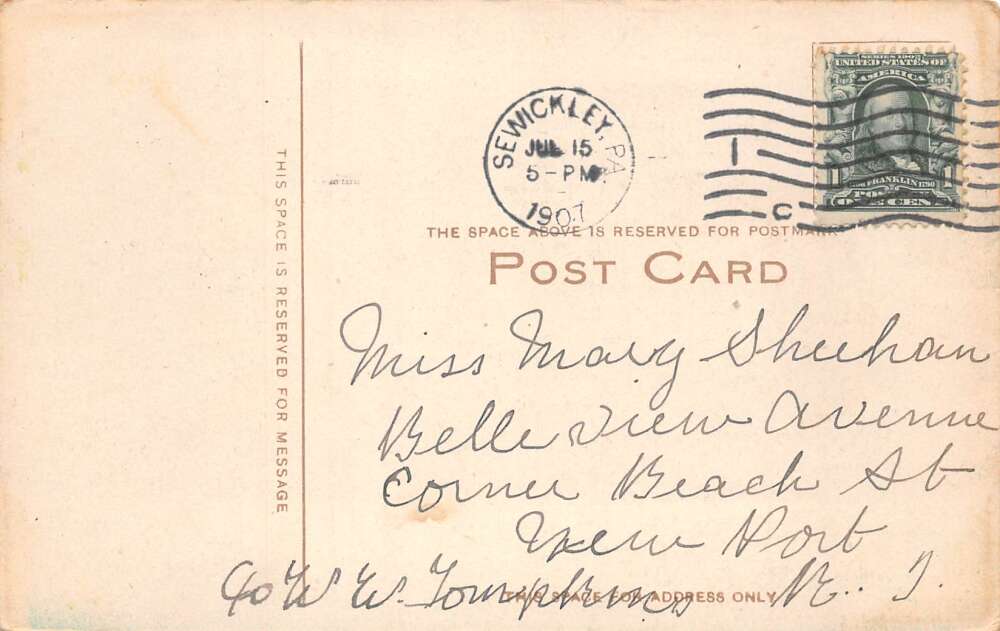 SERIES 1902
UNITED STATES OF
AMERICA
FRANKLIN 1790
1 1
ONE CENT
SEWICKLEY, PA.
JUL 15
5-PM
1907
1
C
THE SPACE ABOVE IS RESERVED FOR POSTMARK
POST CARD
THIS SPACE IS RESERVED FOR MESSAGE
Miss Mary Sheehan
Belle view Avenue
Corner Beach St
New Port
R. I.
c/o W W. Tompkins
THIS SPACE FOR ADDRESS ONLY